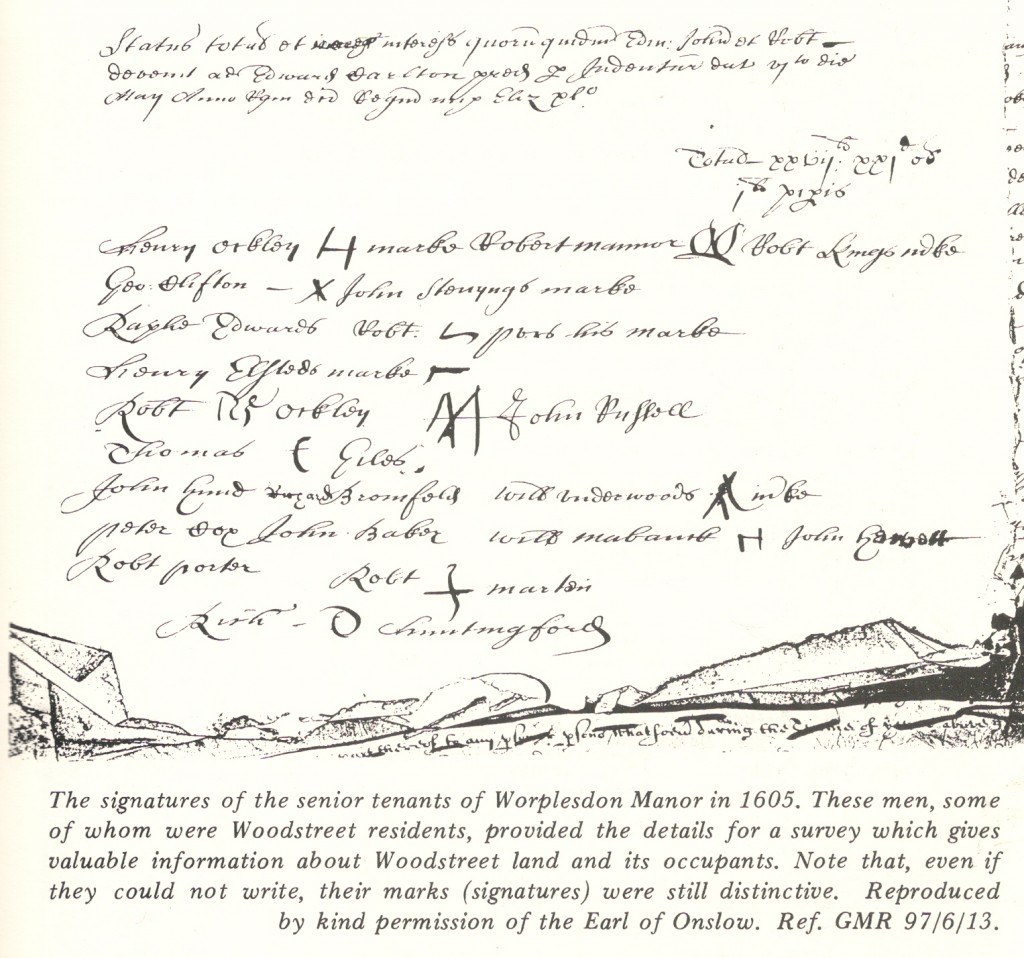 Status totus et interess quorum quidem Edm: John et Robt
devenit ad Edward Carlton pred p Indentur dat vjto die
May Anno Rgni
Totus xxvij:
Henry Ockley marke Robert mannor Robt Kings mke
Geo: Clifton – X John Stenyngs marke
Raphe Edwards Robt: pors his marke
Henry Elsteds marke
Robt Ockley John Russell
Thomas Giles.
John Bromfeld will underwoods mke
Peter Cox John Baker will mabank John
Robt porter Robt marten
Rich – Huntingford
thereof to any whatsoever during the
The signatures of the senior tenants of Worplesdon Manor in 1605. These men, some
of whom were Woodstreet residents, provided the details for a survey which gives
valuable information about Woodstreet land and its occupants. Note that, even if
they could not write, their marks (signatures) were still distinctive. Reproduced
by kind permission of the Earl of Onslow. Ref. GMR 97/6/13.